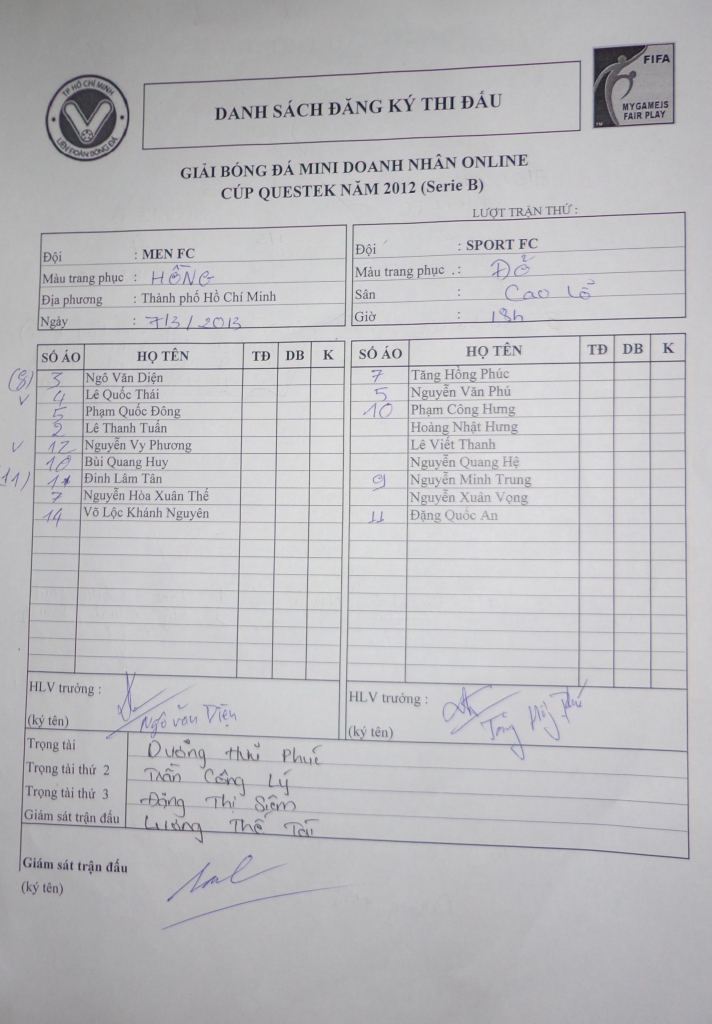 TP HỒ CHÍ MINH
LIÊN ĐOÀN BÓNG ĐÁ
DANH SÁCH ĐĂNG KÝ THI ĐẤU
FIFA
MYGAMEIS
FAIR PLAY
GIẢI BÓNG ĐÁ MINI DOANH NHÂN ONLINE
CÚP QUESTEK NĂM 2012 (Serie B)
LƯỢT TRẬN THỨ :
Đội : MEN FC
Màu trang phục : HỒNG
Địa phương : Thành phố Hồ Chí Minh
Ngày : 7/3/2013
Đội : SPORT FC
Màu trang phục . : ĐỎ
Sân : Cao Lổ
Giờ : 18h
SỐ ÁO HỌ TÊN TĐ DB K
(8) 3 Ngô Văn Diện
v 4 Lê Quốc Thái
5 Phạm Quốc Đông
9 Lê Thanh Tuấn
v 12 Nguyễn Vy Phương
10 Bùi Quang Huy
(11) Đinh Lâm Tân
7 Nguyễn Hòa Xuân Thế
14 Võ Lộc Khánh Nguyên
SỐ ÁO HỌ TÊN TĐ DB K
7 Tăng Hồng Phúc
5 Nguyễn Văn Phú
10 Phạm Công Hưng
Hoàng Nhật Hưng
Lê Viết Thanh
Nguyễn Quang Hệ
9 Nguyễn Minh Trung
Nguyễn Xuân Vọng
11 Đặng Quốc An
HLV trưởng :
(ký tên) Ngô Văn Diện
HLV trưởng :
(ký tên) Tăng Hồng Phúc
Trọng tài Dương Hữu Phúc
Trọng tài thứ 2 Trần Công Lý
Trọng tài thứ 3 Đặng Thi Siêm
Giám sát trận đấu Lương Thế Tài
Giám sát trận đấu
(ký tên)